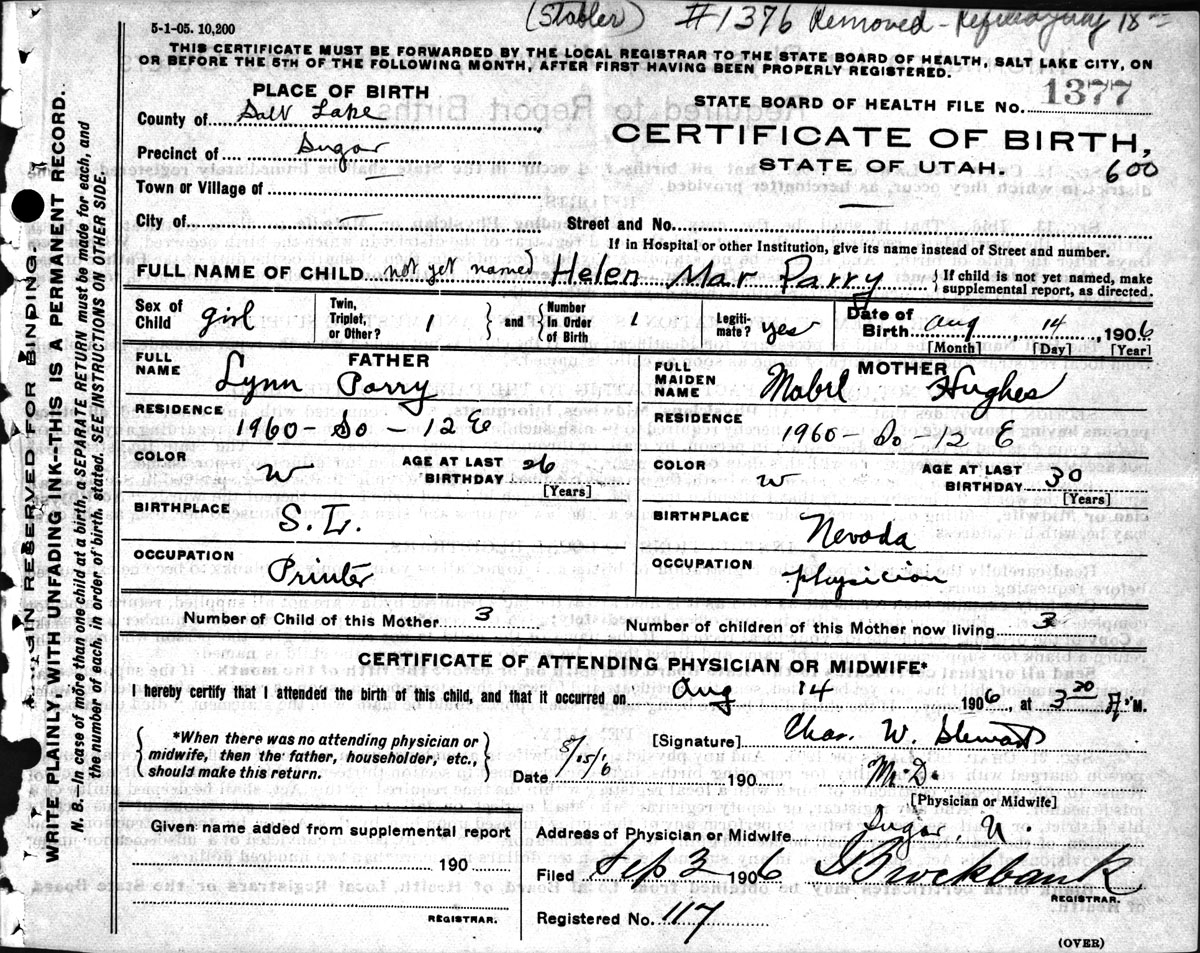 (Stabler) #1376 Removed - Refiled July 18
5-1-05. 10,200
THIS CERTIFICATE MUST BE FORWARDED BY THE LOCAL REGISTRAR TO THE STATE BOARD OF HEALTH, SALT LAKE CITY, ON
OR BEFORE THE 5TH OF THE FOLLOWING MONTH, AFTER FIRST HAVING BEEN PROPERLY REGISTERED.
PLACE OF BIRTH
STATE BOARD OF HEALTH FILE NO. 1377
County of Salt Lake
CERTIFICATE OF BIRTH,
Precinct of Sugar
STATE OF UTAH.
600
Town or Village of
City of —
Street and No.
If in Hospital or other Institution, give its name instead of Street and number.
FULL NAME OF CHILD not yet named Helen Mar Parry { If child is not yet named, make
supplemental report, as directed.
Sex of Child girl Twin, Triplet, or Other? 1 } and { Number In Order of Birth 1 Legiti-mate? yes Date of Birth Aug 14, 1906
[Month] [Day] [Year]
FATHER
FULL NAME Lynn Parry
RESIDENCE
1960 - So - 12 E
COLOR W AGE AT LAST BIRTHDAY 26
[Years]
BIRTHPLACE S. L.
OCCUPATION
Printer
MOTHER
FULL MAIDEN NAME Mabel Hughes
RESIDENCE
1960 - So - 12 E
COLOR W AGE AT LAST BIRTHDAY 30
[Years]
BIRTHPLACE
Nevada
OCCUPATION
physician
Number of Child of this Mother 3 Number of children of this Mother now living 3
CERTIFICATE OF ATTENDING PHYSICIAN OR MIDWIFE*
I hereby certify that I attended the birth of this child, and that it occurred on Aug 14 1906, at 3 30 A.M.
{ *When there was no attending physician or
midwife, then the father, householder, etc.,
should make this return. }
[Signature] Chas. W. Stewart
Date 8/15/6 190 M.D.
[Physician or Midwife]
Given name added from supplemental report
190
REGISTRAR.
Address of Physician or Midwife Sugar, U.
Filed Sep 3 1906 Brockbank
REGISTRAR.
Registered No. 117
(OVER)
MARGIN RESERVED FOR BINDING.
WRITE PLAINLY WITH UNFADING INK—THIS IS A PERMANENT RECORD.
N. B.—In case of more than one child at a birth a SEPARATE RETURN must be made for each, and
the number of each, in order of birth, stated. SEE INSTRUCTIONS ON OTHER SIDE.